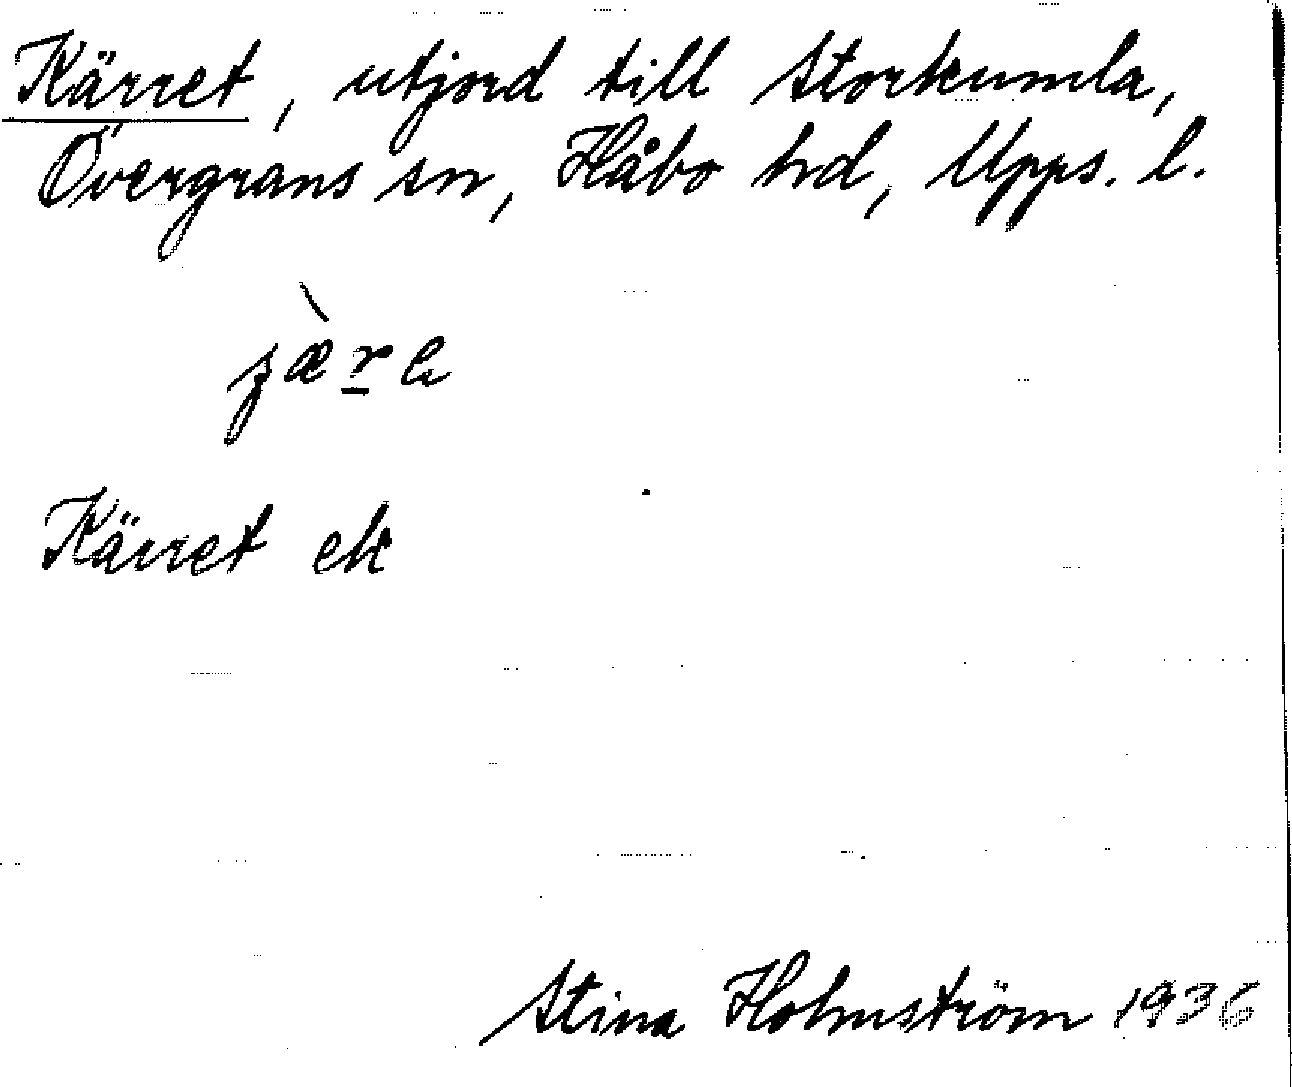 Kärret, utjord till Storkumla,
Övergrans sn, Håbo hd, Upps. l.
Kärret ek
Stina Holmström 1936